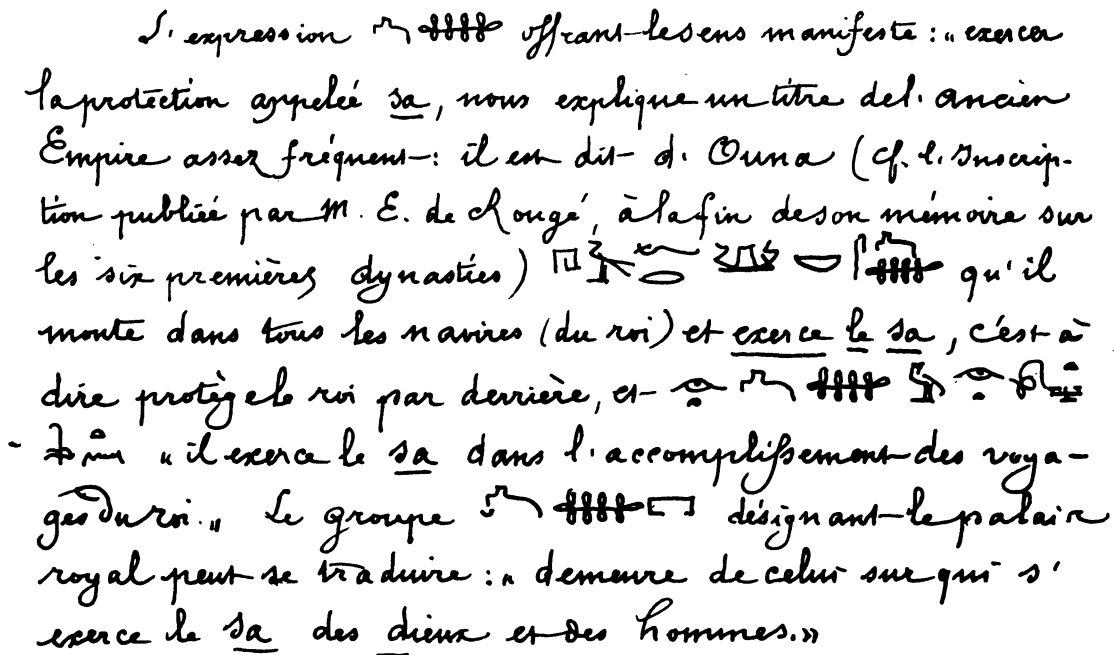 L'expression offrant le sens manifeste : « exercer
la protection appeleé sa, nous explique un titre de l'ancien
Empire assez fréquent : il est dit d'Ouna (cf. l'Inscrip-
tion publiée par M. E. de Rougé, à la fin de son mémoire sur
les six premières dynasties) qu'il
monte dans tous les navires (du roi) et exerce le sa, c'est à
dire protège le roi par derrière, et
« il exerce le sa dans l'accomplissement des voya-
ges du roi. » Le groupe désignant le palais
royal peut se traduire : « demeure de celui sur qui s'
exerce le sa des dieux et des hommes. »